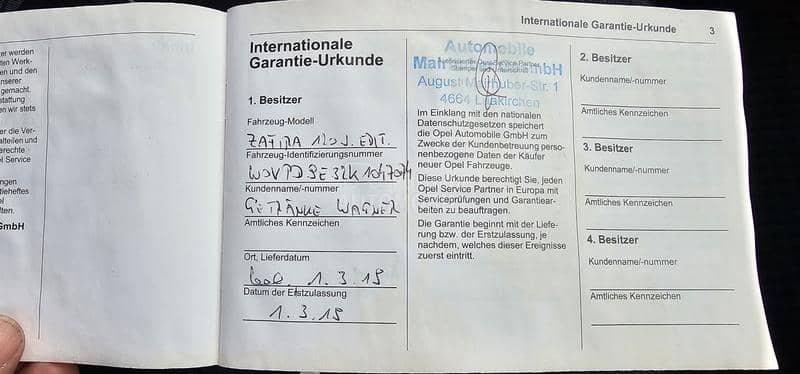 er werden
ten Werk-
en und den
unserer
gemacht.
stattung
en wir stets
r die Ver-
alteilen und
erechte
l Service
ngen
tieheftes
el
lten.
GmbH
Internationale Garantie-Urkunde 3
Internationale
Garantie-Urkunde
1. Besitzer
Fahrzeug-Modell
ZAFIRA 120 J. EDIT.
Fahrzeug-Identifizierungsnummer
Kundenname/-nummer
GETRÄNKE WAGNER
Amtliches Kennzeichen
Ort, Lieferdatum
1.3.19
Datum der Erstzulassung
1.3.19
Automobile
GmbH
August Str. 1
4664
Im Einklang mit den nationalen
Datenschutzgesetzen speichert
die Opel Automobile GmbH zum
Zwecke der Kundenbetreuung perso-
nenbezogene Daten der Käufer
neuer Opel Fahrzeuge.
Diese Urkunde berechtigt Sie, jeden
Opel Service Partner in Europa mit
Serviceprüfungen und Garantiear-
beiten zu beauftragen.
Die Garantie beginnt mit der Liefe-
rung bzw. der Erstzulassung, je
nachdem, welches dieser Ereignisse
zuerst eintritt.
2. Besitzer
Kundenname/-nummer
Amtliches Kennzeichen
3. Besitzer
Kundenname/-nummer
Amtliches Kennzeichen
4. Besitzer
Kundenname/-nummer
Amtliches Kennzeichen